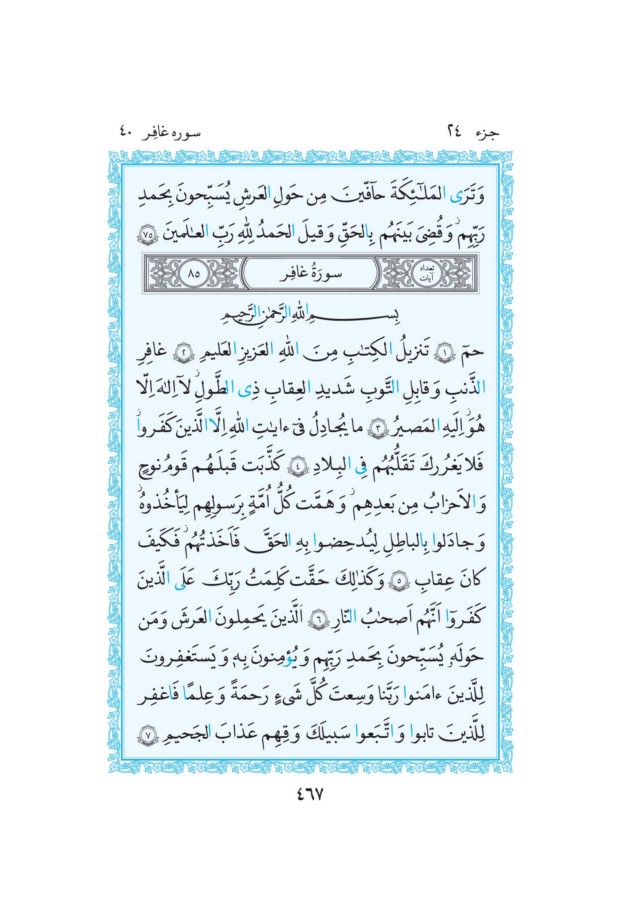 جزء ٢٤
سوره غافِر ٤٠
وَتَرَى المَلٰئِكَةَ حآفّينَ مِن حَولِ العَرشِ يُسَبِّحونَ بِحَمدِ
رَبِّهِم ۖ وَقُضِىَ بَينَهُم بِالحَقِّ وَقيلَ الحَمدُ لِلّٰهِ رَبِّ العٰلَمينَ ٧٥
تعداد آيات سورَةُ غافِر ٨٥
بِسـمِ اللّٰهِ الرَّحمٰنِ الرَّحيمِ
حمٓ ١ تَنزيلُ الكِتٰبِ مِنَ اللّٰهِ العَزيزِ العَليمِ ٢ غافِرِ
الذَّنبِ وَقابِلِ التَّوبِ شَديدِ العِقابِ ذِى الطَّولِ ۖ لآ اِلٰهَ اِلّا
هُوَ ۖ اِلَيهِ المَصيرُ ٣ ما يُجادِلُ فىٓ ءايٰتِ اللّٰهِ اِلَّا الَّذينَ كَفَروا
فَلا يَغرُركَ تَقَلُّبُهُم فِى البِلادِ ٤ كَذَّبَت قَبلَهُم قَومُ نوحٍ
وَالاَحزابُ مِن بَعدِهِم ۖ وَهَمَّت كُلُّ اُمَّةٍ بِرَسولِهِم لِيَأخُذوهُ ۖ
وَجادَلوا بِالباطِلِ لِيُدحِضوا بِهِ الحَقَّ فَاَخَذتُهُم ۖ فَكَيفَ
كانَ عِقابِ ٥ وَكَذٰلِكَ حَقَّت كَلِمَتُ رَبِّكَ عَلَى الَّذينَ
كَفَروٓا اَنَّهُم اَصحٰبُ النّارِ ٦ اَلَّذينَ يَحمِلونَ العَرشَ وَمَن
حَولَهو يُسَبِّحونَ بِحَمدِ رَبِّهِم وَيُؤمِنونَ بِهٖ وَيَستَغفِرونَ
لِلَّذينَ ءامَنوا رَبَّنا وَسِعتَ كُلَّ شَىءٍ رَحمَةً وَعِلمًا فَاغفِر
لِلَّذينَ تابوا وَاتَّبَعوا سَبيلَكَ وَقِهِم عَذابَ الجَحيمِ ٧
٤٦٧